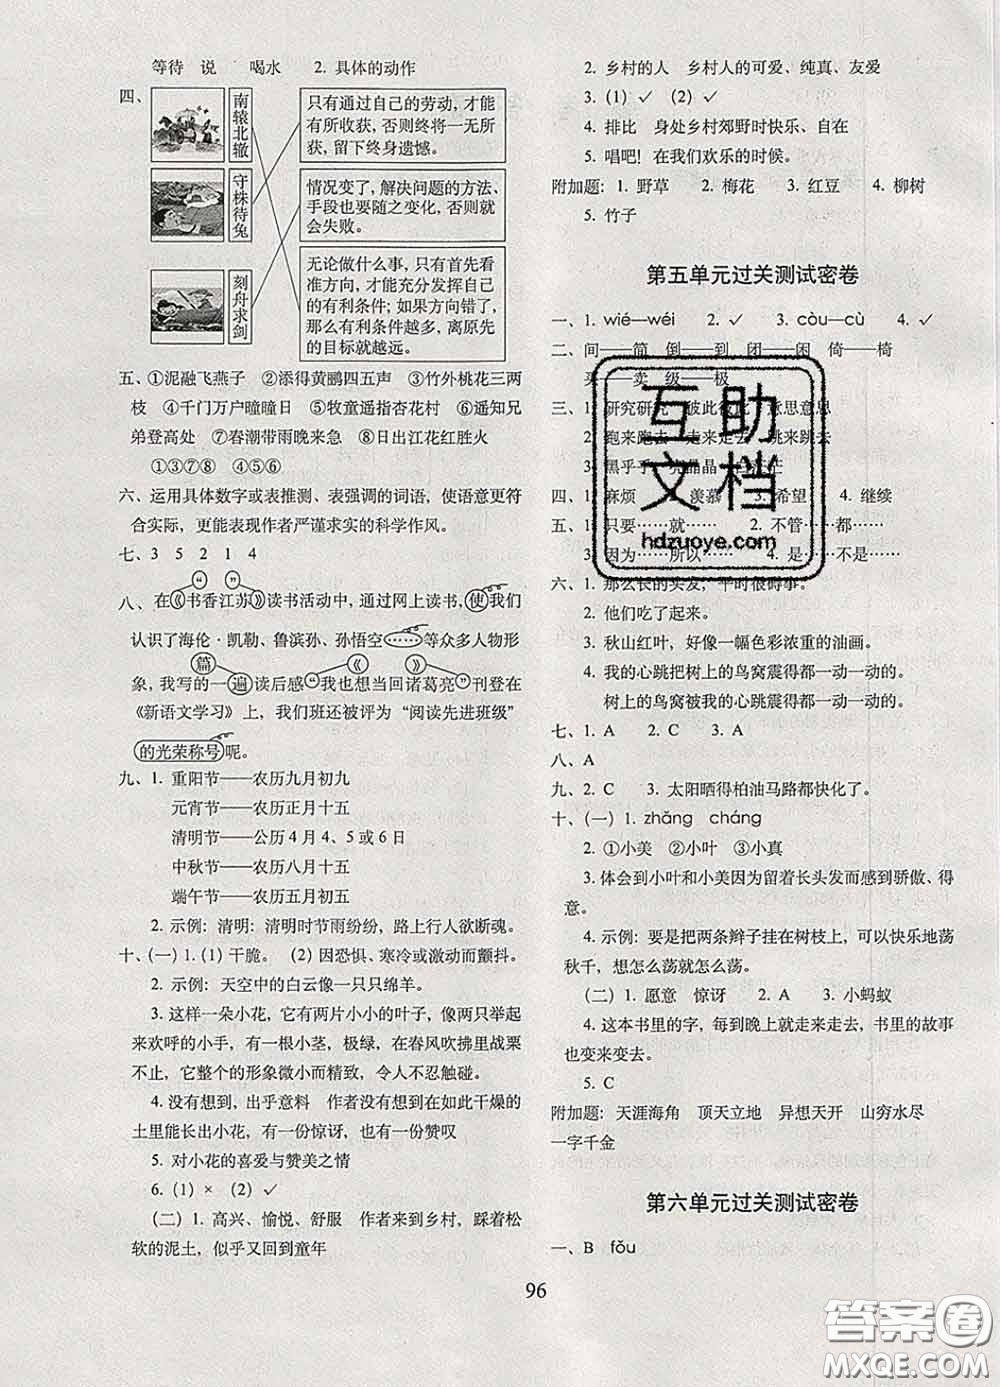 等待　说　　喝水　　2. 具体的动作
四、
南辕北辙
守株待兔
刻舟求剑
只有通过自己的劳动，才能
有所收获，否则终将一无所
获，留下终身遗憾。
情况变了，解决问题的方法、
手段也要随之变化，否则就
会失败。
无论做什么事，只有首先看
准方向，才能充分发挥自己
的有利条件；如果方向错了，
那么有利条件越多，离原先
的目标就越远。
五、①泥融飞燕子　②添得黄鹂四五声　③竹外桃花三两
枝　④千门万户曈曈日　⑤牧童遥指杏花村　⑥遥知兄
弟登高处　⑦春潮带雨晚来急　⑧日出江花红胜火
①③⑦⑧　④⑤⑥
六、运用具体数字或表推测、表强调的词语，使语意更符
合实际，更能表现作者严谨求实的科学作风。
七、3　5　2　1　4
“　”
八、在《书香江苏》读书活动中，通过网上读书，使我们
认识了海伦·凯勒、鲁滨孙、孙悟空……等众多人物形
篇　《　》
象，我写的一遍读后感“我也想当回诸葛亮”刊登在
《新语文学习》上，我们班还被评为“阅读先进班级”
的光荣称号呢。
九、1. 重阳节——农历九月初九
元宵节——农历正月十五
清明节——公历4月4、5或6日
中秋节——农历八月十五
端午节——农历五月初五
2. 示例：清明：清明时节雨纷纷，路上行人欲断魂。
十、(一) 1. (1) 干脆。　(2) 因恐惧、寒冷或激动而颤抖。
2. 示例：天空中的白云像一只只绵羊。
3. 这样一朵小花，它有两片小小的叶子，像两只举起
来欢呼的小手，有一根小茎，极绿，在春风吹拂里战栗
不止，它整个的形象微小而精致，令人不忍触碰。
4. 没有想到，出乎意料　作者没有想到在如此干燥的
土里能长出小花，有一份惊讶，也有一份赞叹
5. 对小花的喜爱与赞美之情
6. (1) ×　(2) ✓
(二) 1. 高兴、愉悦、舒服　作者来到乡村，踩着松
软的泥土，似乎又回到童年
2. 乡村的人　乡村人的可爱、纯真、友爱
3. (1) ✓　(2) ✓
4. 排比　身处乡村郊野时快乐、自在
5. 唱吧！在我们欢乐的时候。
附加题：1. 野草　2. 梅花　3. 红豆　4. 柳树
5. 竹子
第五单元过关测试密卷
一、1. wié—wéi　2. ✓　3. còu—cù　4. ✓
二、间——简　倒——到　闭——闲　倚——椅
买——卖　级——极
三、1. 研究研究　彼此彼此　意思意思
2. 跑来跑去　走来走去　跳来跳去
3. 黑乎乎　亮晶晶　白茫茫
四、1. 麻烦　2. 羡慕　3. 希望　4. 继续
五、1. 只要……就……　2. 不管……都……
3. 因为……所以……　4. 是……不是……
六、1. 那么长的头发，平时很碍事。
2. 他们吃了起来。
3. 秋山红叶，好像一幅色彩浓重的油画。
4. 我的心跳把树上的鸟窝震得都一动一动的。
树上的鸟窝被我的心跳震得都一动一动的。
七、1. A　2. C　3. A
八、A
九、2. C　3. 太阳晒得柏油马路都快化了。
十、(一) 1. zhǎng　cháng
2. ①小美　②小叶　③小真
3. 体会到小叶和小美因为留着长头发而感到骄傲、得
意。
4. 示例：要是把两条辫子挂在树枝上，可以快乐地荡
秋千，想怎么荡就怎么荡。
(二) 1. 愿意　惊讶　2. A　3. 小蚂蚁
4. 这本书里的字，每到晚上就走来走去，书里的故事
也变来变去。
5. C
附加题：天涯海角　顶天立地　异想天开　山穷水尽
一字千金
第六单元过关测试密卷
一、B　fǒu
96
互助
文档
hdzuoye.com
答案圈
MXQE.COM